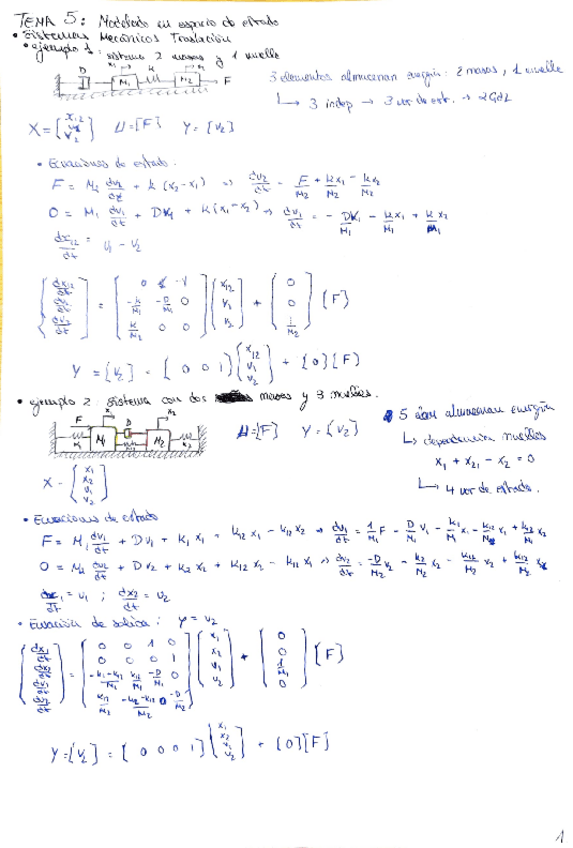 TEMA 5: Modelado en espacio de estado
• Sistemas Mecánicos Traslación
• ejemplo 1: sistema 2 masas y 1 muelle
x1 x2
D M1 K M2 F
3 elementos almacenan energía: 2 masas, 1 muelle
↳ 3 indep → 3 var de est. → 2 GdL
X = [x12 v1 v2] U = [F] Y = [v2]
• Ecuaciones de estado.
F = M2 dv2/dt + K (x2 - x1) => dv2/dt = F/M2 + kx1/M2 - kx2/M2
0 = M1 dv1/dt + Dv1 + K(x1 - x2) → dv1/dt = - Dv1/M1 - kx1/M1 + kx2/M1
dx12/dt = v1 - v2
[dx12/dt dv1/dt dv2/dt] = [0 1 -1; -k/M1 -D/M1 0; k/M2 0 0] [x12 v1 v2] + [0 0 1/M2] [F]
Y = [v2] = [0 0 1] [x12 v1 v2] + [0] [F]
• ejemplo 2: sistema con dos masas y 3 muelles.
F x1 D x2
K1 M1 K12 M2 K2
U = [F] Y = [v2]
5 elem almacenan energía
↳ dependencia muelles
x1 + x21 - x2 = 0
↳ 4 var de estado.
X = [x1 x2 v1 v2]
• Ecuaciones de estado
F = M1 dv1/dt + Dv1 + K1 x1 + K12 x1 - K12 x2 => dv1/dt = 1/M1 F - D/M1 v1 - K1/M1 x1 - K12/M1 x1 + K12/M1 x2
0 = M2 dv2/dt + Dv2 + K2 x2 + K12 x2 - K12 x1 => dv2/dt = -D/M2 v2 - K2/M2 x2 - K12/M2 x2 + K12/M2
dx1/dt = v1 ; dx2/dt = v2
• Ecuación de salida: y = v2
[dx1/dt dx2/dt dv1/dt dv2/dt] = [0 0 1 0; 0 0 0 1; -K1-K12/M1 K12/M1 -D/M1 0; K12/M2 -K2-K12/M2 0 -D/M2] [x1 x2 v1 v2] + [0 0 1/M1 0] [F]
Y = [v2] = [0 0 0 1] [x1 x2 v1 v2] + [0] [F]
1